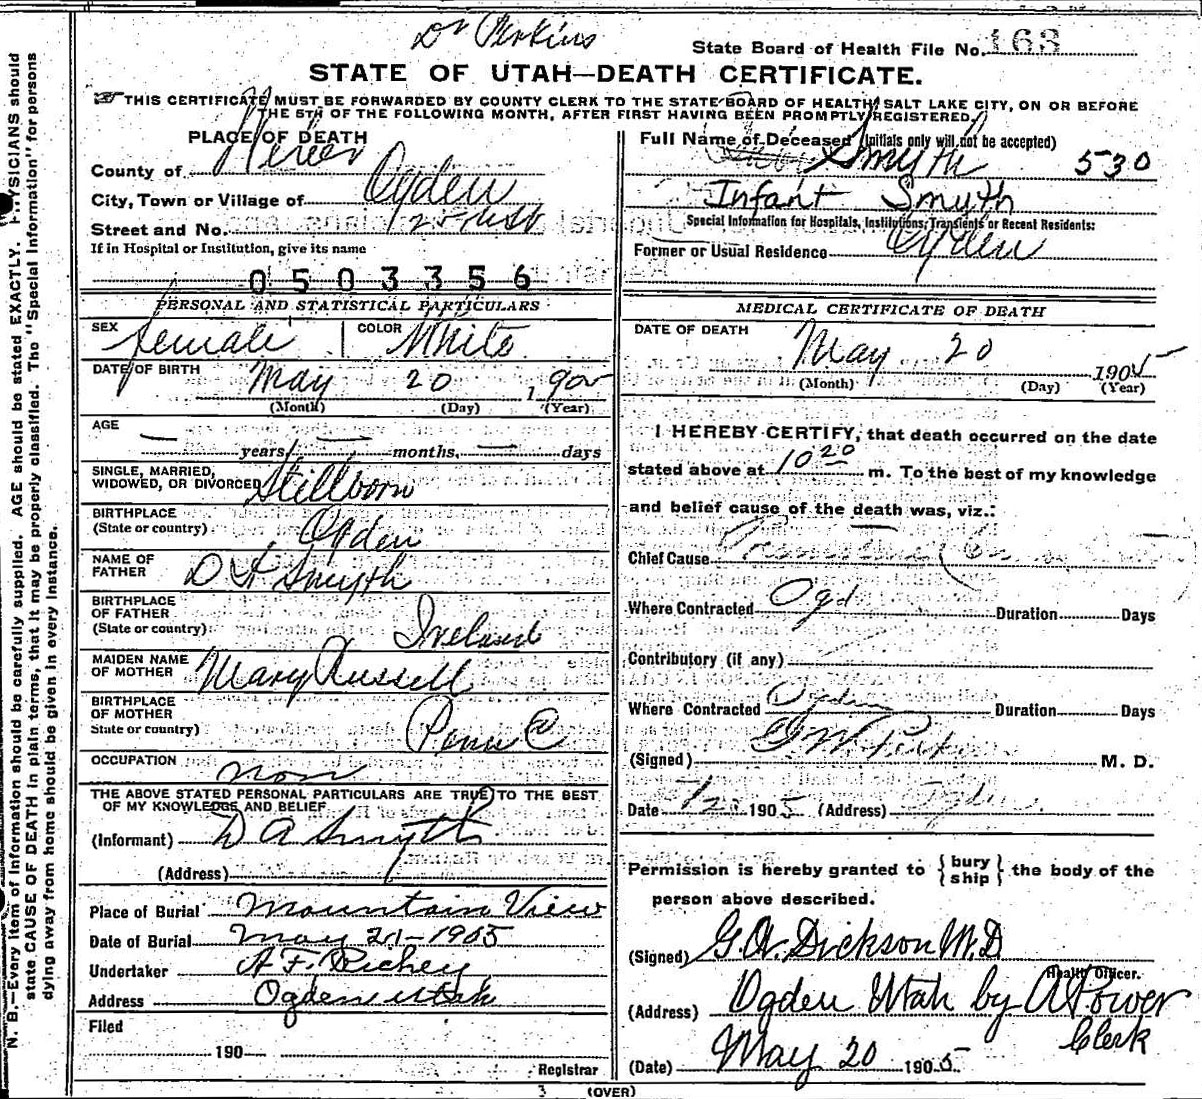 Dr Perkins
State Board of Health File No. 163
STATE OF UTAH—DEATH CERTIFICATE.
THIS CERTIFICATE MUST BE FORWARDED BY COUNTY CLERK TO THE STATE BOARD OF HEALTH, SALT LAKE CITY, ON OR BEFORE
THE 5TH OF THE FOLLOWING MONTH, AFTER FIRST HAVING BEEN PROMPTLY REGISTERED.
PLACE OF DEATH
County of Weber
City, Town or Village of Ogden
Street and No. 25
If in Hospital or Institution, give its name
0503356
PERSONAL AND STATISTICAL PARTICULARS
SEX Female COLOR White
DATE OF BIRTH May 20 1905
(Month) (Day) (Year)
AGE — years, — months, — days
SINGLE, MARRIED,
WIDOWED, OR DIVORCED Stillborn
BIRTHPLACE
(State or country) Ogden
NAME OF
FATHER Smyth
BIRTHPLACE
OF FATHER
(State or country) Ireland
MAIDEN NAME
OF MOTHER Mary Russell
BIRTHPLACE
OF MOTHER
State or country)
OCCUPATION non
THE ABOVE STATED PERSONAL PARTICULARS ARE TRUE TO THE BEST
OF MY KNOWLEDGE AND BELIEF
(Informant) D A Smyth
(Address)
Place of Burial Mountain View
Date of Burial May 21-1905
Undertaker A. F. Richey
Address Ogden Utah
Filed
190
Registrar
Full Name of Deceased (Initials only will not be accepted)
Smyth 530
Infant Smyth
Special Information for Hospitals, Institutions, Transients or Recent Residents:
Former or Usual Residence Ogden
MEDICAL CERTIFICATE OF DEATH
DATE OF DEATH
May 20 1905
(Month) (Day) (Year)
I HEREBY CERTIFY, that death occurred on the date
stated above at 10 20 m. To the best of my knowledge
and belief cause of the death was, viz.:
Chief Cause
Where Contracted Ogd Duration Days
Contributory (if any)
Where Contracted Ogden Duration Days
(Signed) M. D.
Date 1905 (Address) Ogden
Permission is hereby granted to { bury
ship } the body of the
person above described.
(Signed) G. A. Dickson M.D
Health Officer.
(Address) Ogden Utah by A Power
Clerk
(Date) May 20 1905
3 (OVER)
N. B.—Every item of information should be carefully supplied. AGE should be stated EXACTLY. PHYSICIANS should
state CAUSE OF DEATH in plain terms, that it may be properly classified. The "Special Information" for persons
dying away from home should be given in every instance.